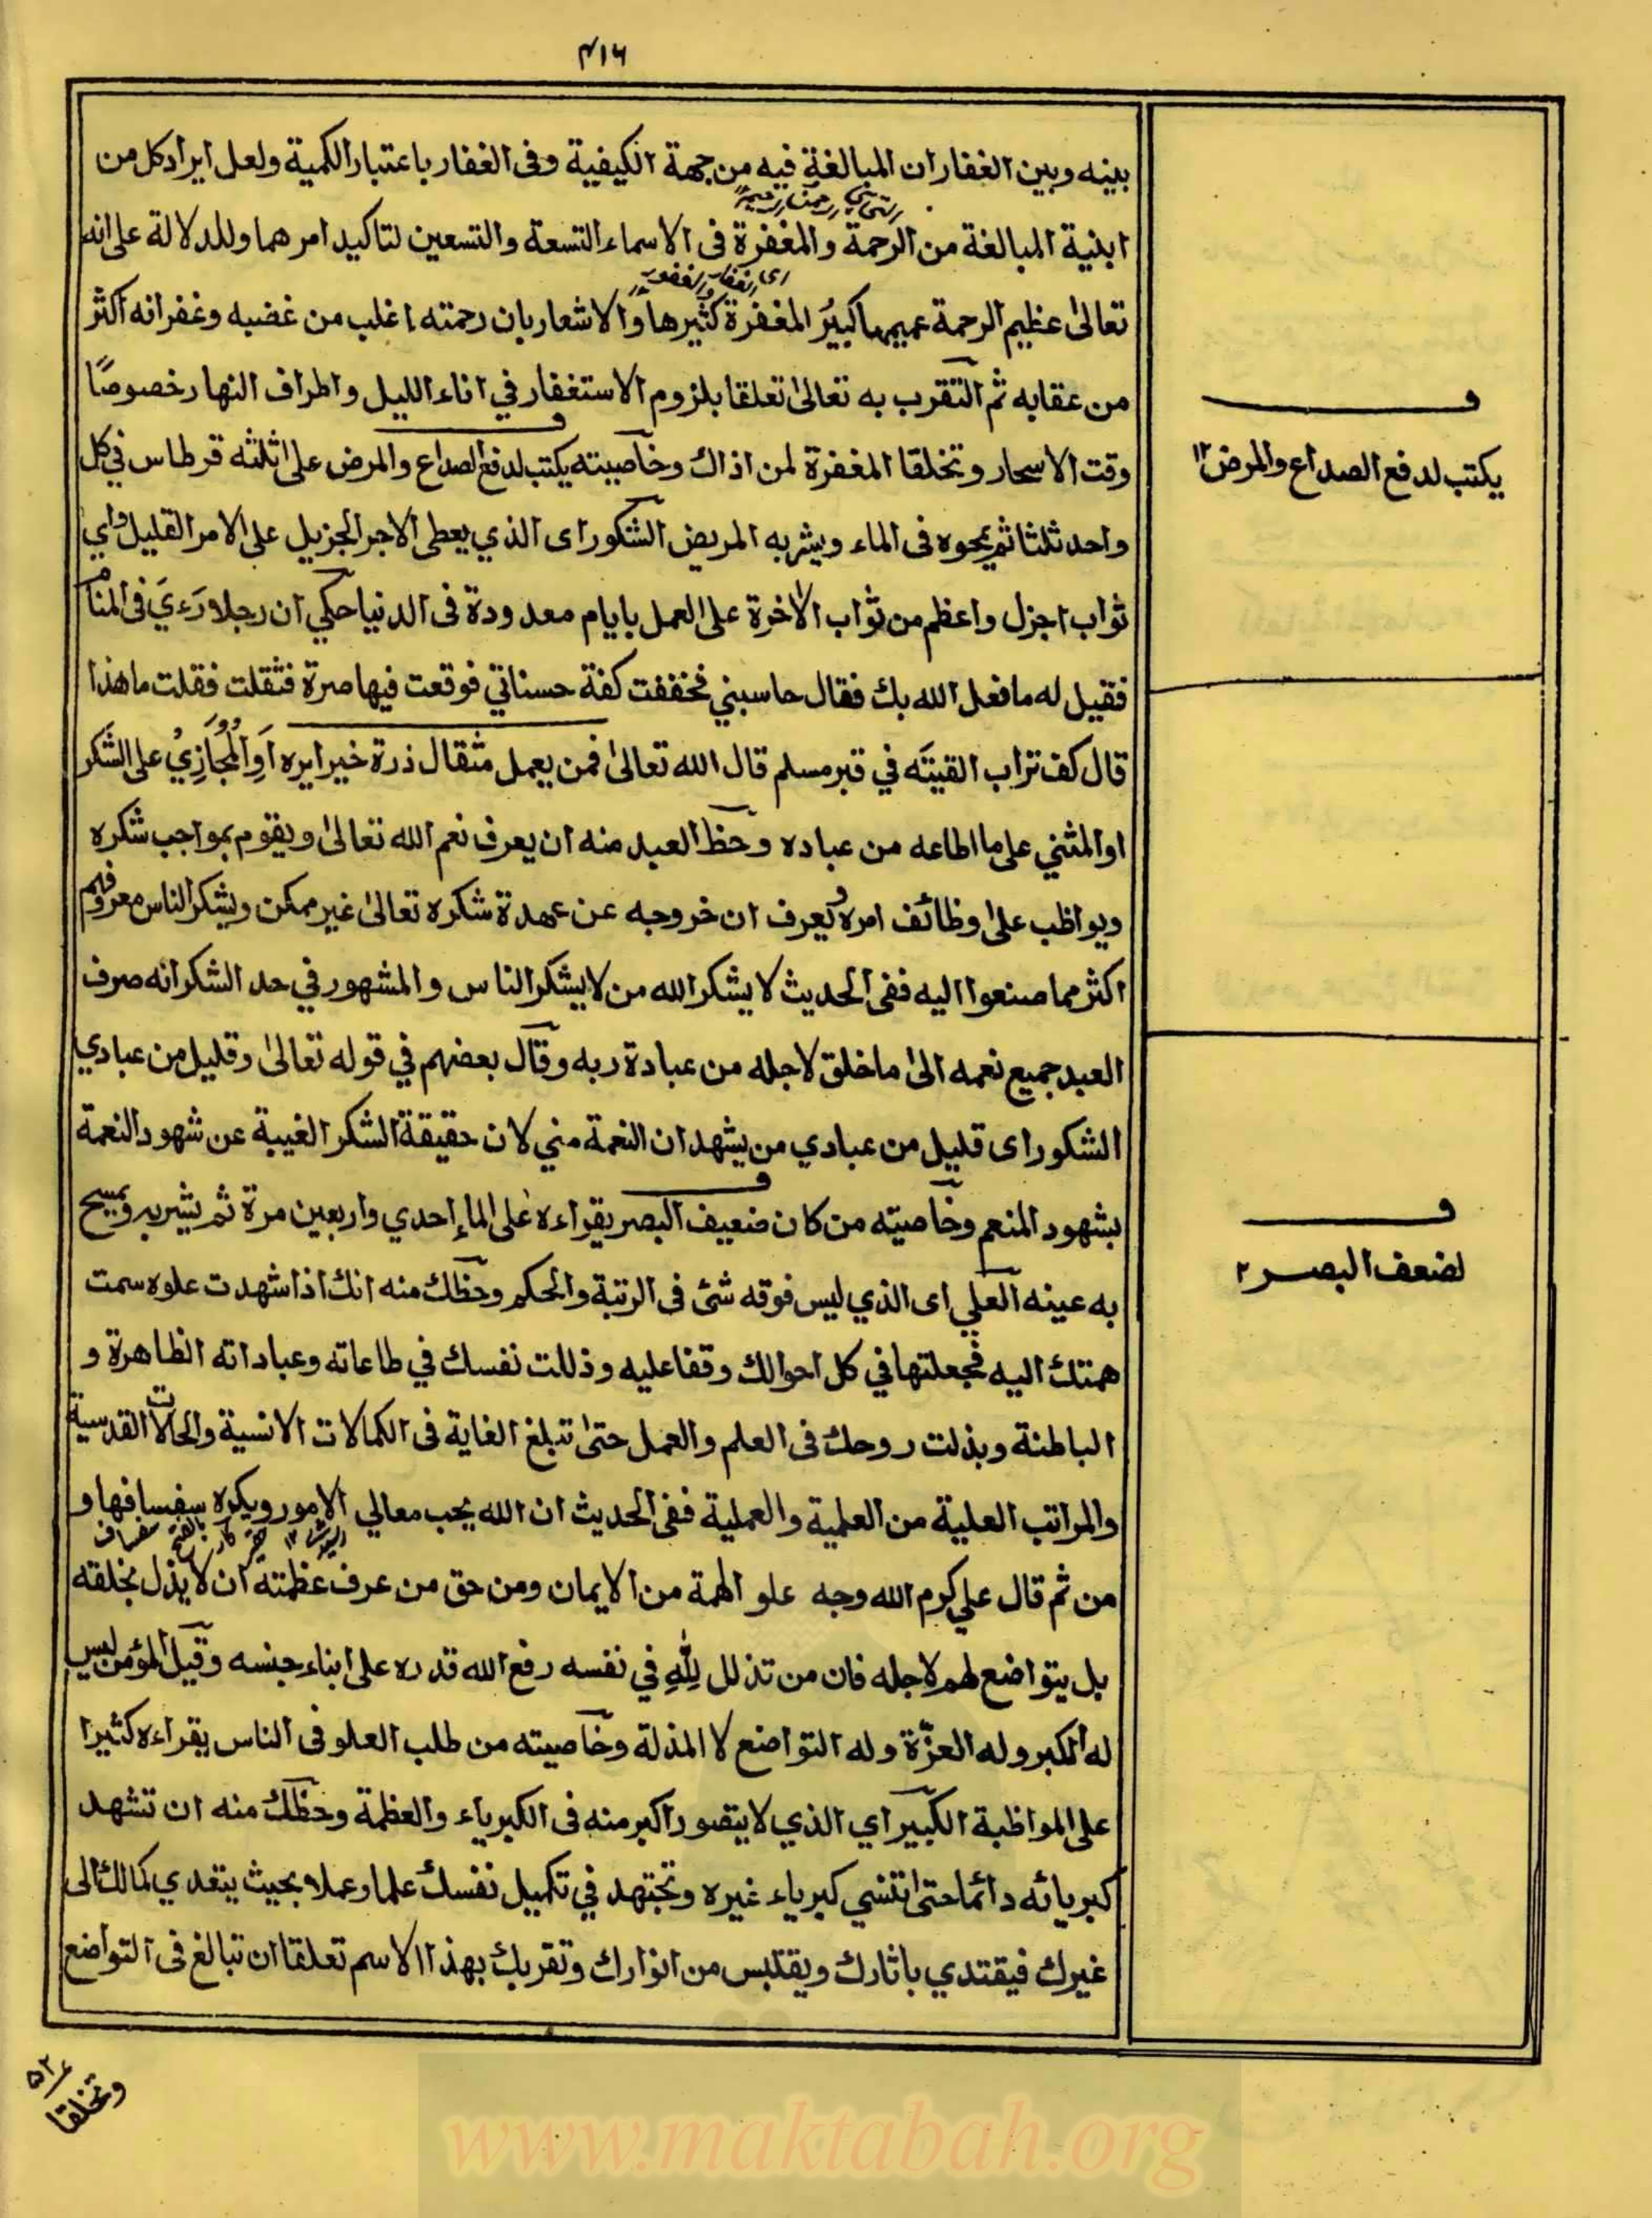 ٤١٦
بينه وبين الغفار ان المبالغة فيه من جهة الكيفية وفى الغفار باعتبار الكمية ولعل ايراد كل من
ابنية المبالغة من الرحمة والمغفرة فى الاسماء التسعة والتسعين لتاكيد امرهما وللدلالة على انه
اى الغفار والغفور
تعالىٰ عظيم الرحمة عميمها كبيرُ المغفرة كثيرها والاشعار بان رحمته اغلب من غضبه وغفرانه اكثر
من عقابه ثم التقرب به تعالىٰ تعلقا بلزوم الاستغفار في اناء الليل واطراف النهار خصوصًا
وقت الاسحار وتخلقا المغفرة لمن اذاك وخاصيته يكتب لدفع الصداع والمرض على ثلثة قرطاس في كل
يكتب لدفع الصداع والمرض ١٢
واحد ثلثا ثم يمحوه فى الماء ويشربه المريض الشكور اى الذي يعطى الاجر الجزيل على الامر القليل واي
ثواب اجزل واعظم من ثواب الاخرة على العمل بايام معدودة فى الدنيا حكي ان رجلا رَءِيَ فى المنام
فقيل له ما فعل الله بك فقال حاسبني فخففت كفة حسناتي فوقعت فيها صرة فثقلت فقلت ما هذا
قال كف تراب القيتَه في قبر مسلم قال الله تعالىٰ فمن يعمل مثقال ذرة خيرا يره اَوِالْمُجَازِيْ على الشكر
او المثني على ما اطاعه من عباده وحظ العبد منه ان يعرف نعم الله تعالىٰ ويقوم بمواجب شكره
ويواظب علىٰ وظائف امره ويعرف ان خروجه عن عهدة شكره تعالىٰ غير ممكن ويشكر الناس معروفهم
اكثر مما صنعوا اليه ففى الحديث لا يشكر الله من لا يشكر الناس والمشهور في حد الشكر انه صرف
العبد جميع نعمه الىٰ ما خلق لاجله من عبادة ربه وقال بعضهم في قوله تعالىٰ وقليل من عبادي
الشكور اى قليل من عبادي من يشهد ان النعمة مني لان حقيقة الشكر الغيبة عن شهود النعمة
بشهود المنعم وخاصيته من كان ضعيف البصر يقراءه على الماء احدي واربعين مرة ثم يشربه ويمسح
لضعف البصر ٢
به عينه العلي اى الذي ليس فوقه شئ فى الرتبة والحكم وحظك منه انك اذا شهدت علوه سمت
همتك اليه فجعلتها في كل احوالك وقفا عليه وذللت نفسك في طاعاته وعباداته الظاهرة و
الباطنة وبذلت روحك فى العلم والعمل حتىٰ تبلغ الغاية فى الكمالات الانسية والحالات القدسية
والمراتب العلية من العلمية والعملية ففى الحديث ان الله يحب معالي الامور ويكره سفسافها و
من ثم قال علي كرم الله وجه علو الهمة من الايمان ومن حق من عرف عظمته ان لا يذل بخلقه
بل يتواضع لهم لاجله فان من تذلل لِلّٰهِ في نفسه رفع الله قدره على ابناء جنسه وقيل المؤمن ليس
له الكبر وله العزّة وله التواضع لا المذلة وخاصيته من طلب العلو فى الناس يقراءه كثيرا
على المواظبة الكبير اي الذي لا يتصور اكبر منه فى الكبرياء والعظمة وحظك منه ان تشهد
كبريائه دائما حتىٰ تنسي كبرياء غيره وتجتهد في تكميل نفسك علما وعملا بحيث يتعدي كمالك الى
غيرك فيقتدي باثارك ويقتبس من انوارك وتقربك بهذا الاسم تعلقا ان تبالغ فى التواضع
وتخلقا
www.maktabah.org